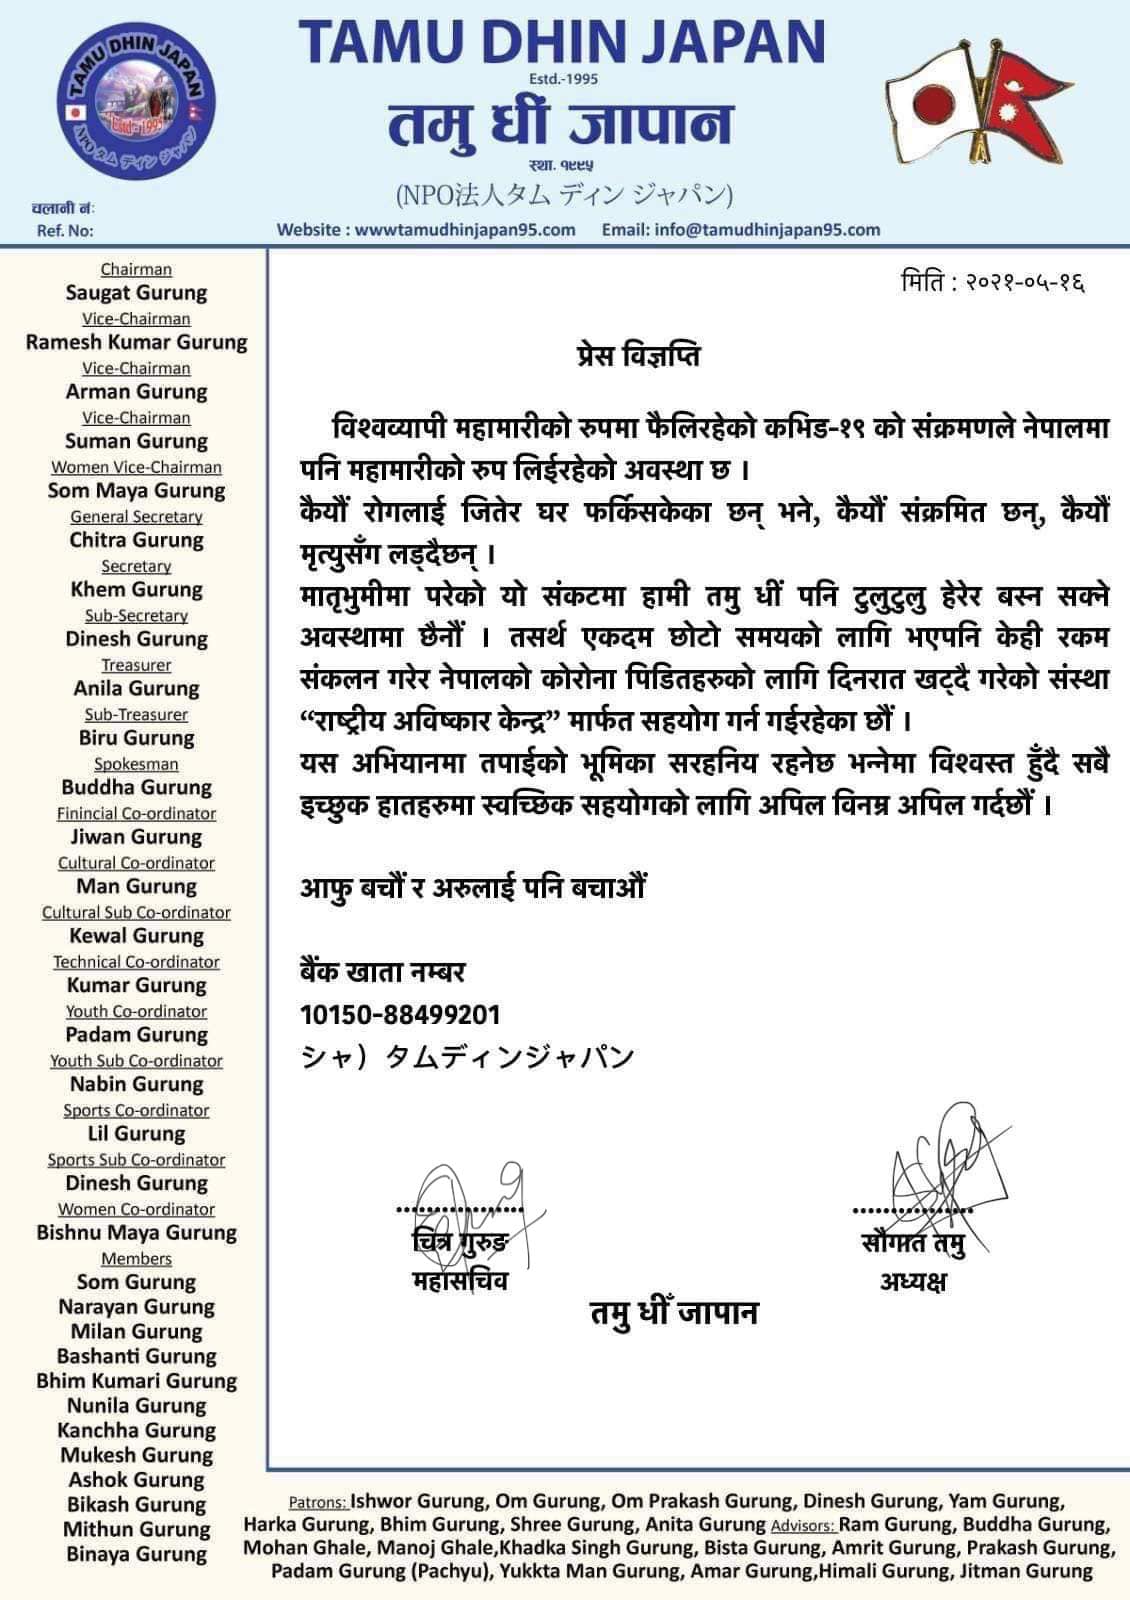 TAMU DHIN JAPAN
Estd.-1995
तमु धीं जापान
स्था. १९९५
(NPO法人タム ディン ジャパン)
TAMU DHIN JAPAN
Estd - 1995
NPO タム ディン ジャパン
चलानी नं:
Ref. No:
Website : wwwtamudhinjapan95.com Email: info@tamudhinjapan95.com
Chairman
Saugat Gurung
Vice-Chairman
Ramesh Kumar Gurung
Vice-Chairman
Arman Gurung
Vice-Chairman
Suman Gurung
Women Vice-Chairman
Som Maya Gurung
General Secretary
Chitra Gurung
Secretary
Khem Gurung
Sub-Secretary
Dinesh Gurung
Treasurer
Anila Gurung
Sub-Treasurer
Biru Gurung
Spokesman
Buddha Gurung
Finincial Co-ordinator
Jiwan Gurung
Cultural Co-ordinator
Man Gurung
Cultural Sub Co-ordinator
Kewal Gurung
Technical Co-ordinator
Kumar Gurung
Youth Co-ordinator
Padam Gurung
Youth Sub Co-ordinator
Nabin Gurung
Sports Co-ordinator
Lil Gurung
Sports Sub Co-ordinator
Dinesh Gurung
Women Co-ordinator
Bishnu Maya Gurung
Members
Som Gurung
Narayan Gurung
Milan Gurung
Bashanti Gurung
Bhim Kumari Gurung
Nunila Gurung
Kanchha Gurung
Mukesh Gurung
Ashok Gurung
Bikash Gurung
Mithun Gurung
Binaya Gurung
मिति : २०२१-०५-१६
प्रेस विज्ञप्ति
विश्वव्यापी महामारीको रुपमा फैलिरहेको कभिड-१९ को संक्रमणले नेपालमा
पनि महामारीको रुप लिईरहेको अवस्था छ ।
कैयौं रोगलाई जितेर घर फर्किसकेका छन् भने, कैयौं संक्रमित छन्, कैयौं
मृत्युसँग लड्दैछन् ।
मातृभुमीमा परेको यो संकटमा हामी तमु धीं पनि टुलुटुलु हेरेर बस्न सक्ने
अवस्थामा छैनौं । तसर्थ एकदम छोटो समयको लागि भएपनि केही रकम
संकलन गरेर नेपालको कोरोना पिडितहरुको लागि दिनरात खट्दै गरेको संस्था
“राष्ट्रीय अविष्कार केन्द्र” मार्फत सहयोग गर्न गईरहेका छौं ।
यस अभियानमा तपाईको भूमिका सरहनिय रहनेछ भन्नेमा विश्वस्त हुँदै सबै
इच्छुक हातहरुमा स्वच्छिक सहयोगको लागि अपिल विनम्र अपिल गर्दछौं ।
आफु बचौं र अरुलाई पनि बचाऔं
बैंक खाता नम्बर
10150-88499201
シャ）タムディンジャパン
चित्र गुरुङ
महासचिव
सौगात तमु
अध्यक्ष
तमु धीँ जापान
Patrons: Ishwor Gurung, Om Gurung, Om Prakash Gurung, Dinesh Gurung, Yam Gurung,
Harka Gurung, Bhim Gurung, Shree Gurung, Anita Gurung Advisors: Ram Gurung, Buddha Gurung,
Mohan Ghale, Manoj Ghale,Khadka Singh Gurung, Bista Gurung, Amrit Gurung, Prakash Gurung,
Padam Gurung (Pachyu), Yukkta Man Gurung, Amar Gurung,Himali Gurung, Jitman Gurung